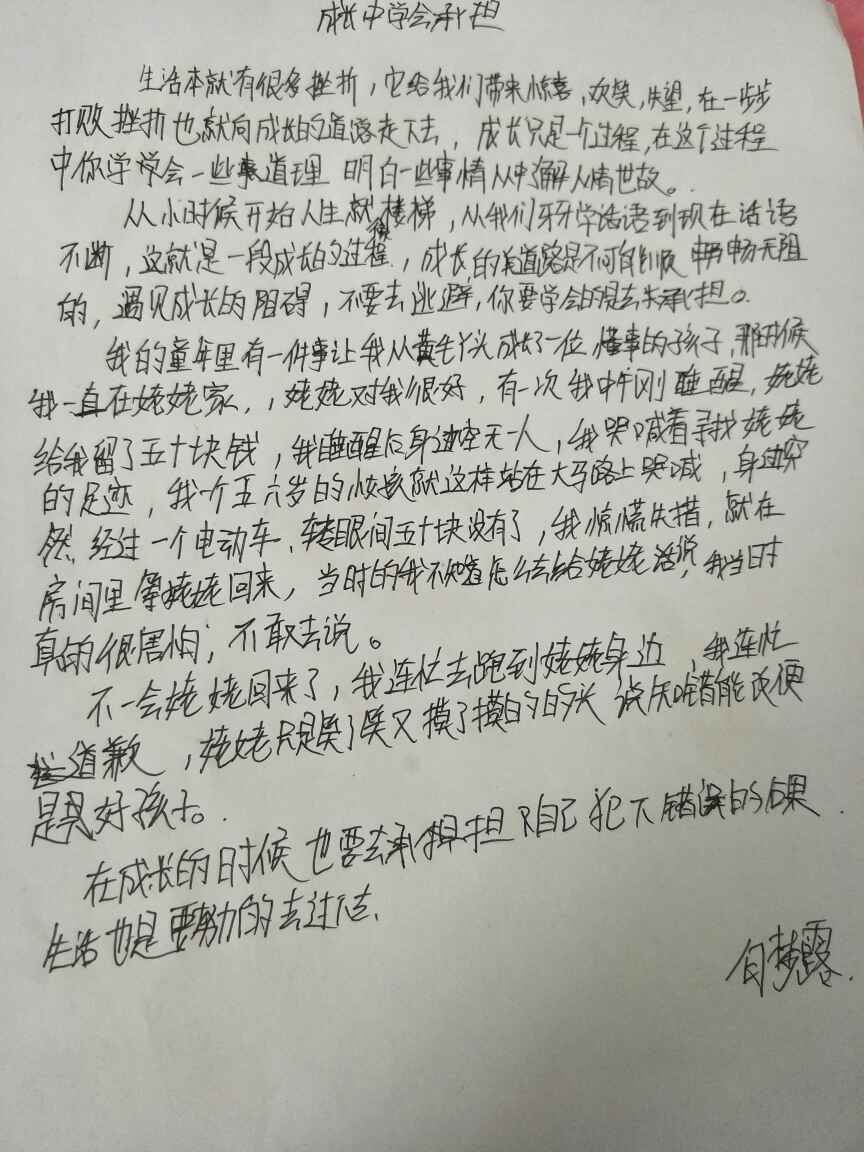 成长中学会承担
生活本就有很多挫折，它给我们带来惊喜，欢笑，失望，在一步步
打败挫折也就向成长的道路走下去，成长只是一个过程，在这个过程
中你学会一些道理 明白一些事情从中了解人情世故。
从小时候开始人生就像楼梯，从我们牙牙学语到现在话语
不断，这就是一段成长的过程，成长的道路是不可能顺 畅畅无阻
的，遇见成长的阻碍，不要去逃避，你要学会的是去承担。
我的童年里有一件事让我从黄毛丫头成长了一位 懂事的孩子，那时候
我一直在姥姥家，，姥姥对我很好，有一次我中午刚睡醒，姥姥
给我留了五十块钱，我睡醒后身边空无一人，我哭喊着寻找姥姥
的足迹，我一个五六岁的小孩就这样站在大马路上哭喊，身边突
然 经过一个电动车、转眼间五十块没有了，我惊慌失措，就在
房间里等姥姥回来，当时的我不知道怎么去给姥姥说，我当时
真的很害怕；不敢去说。
不一会姥姥回来了，我连忙去跑到姥姥身边，我连忙
道歉，姥姥只是笑了笑又摸了摸我的头 说知错能改便
是好孩子。
在成长的时候也要去承担自己犯下错误的后果.
生活也是要努力的去过下去、
白梦露